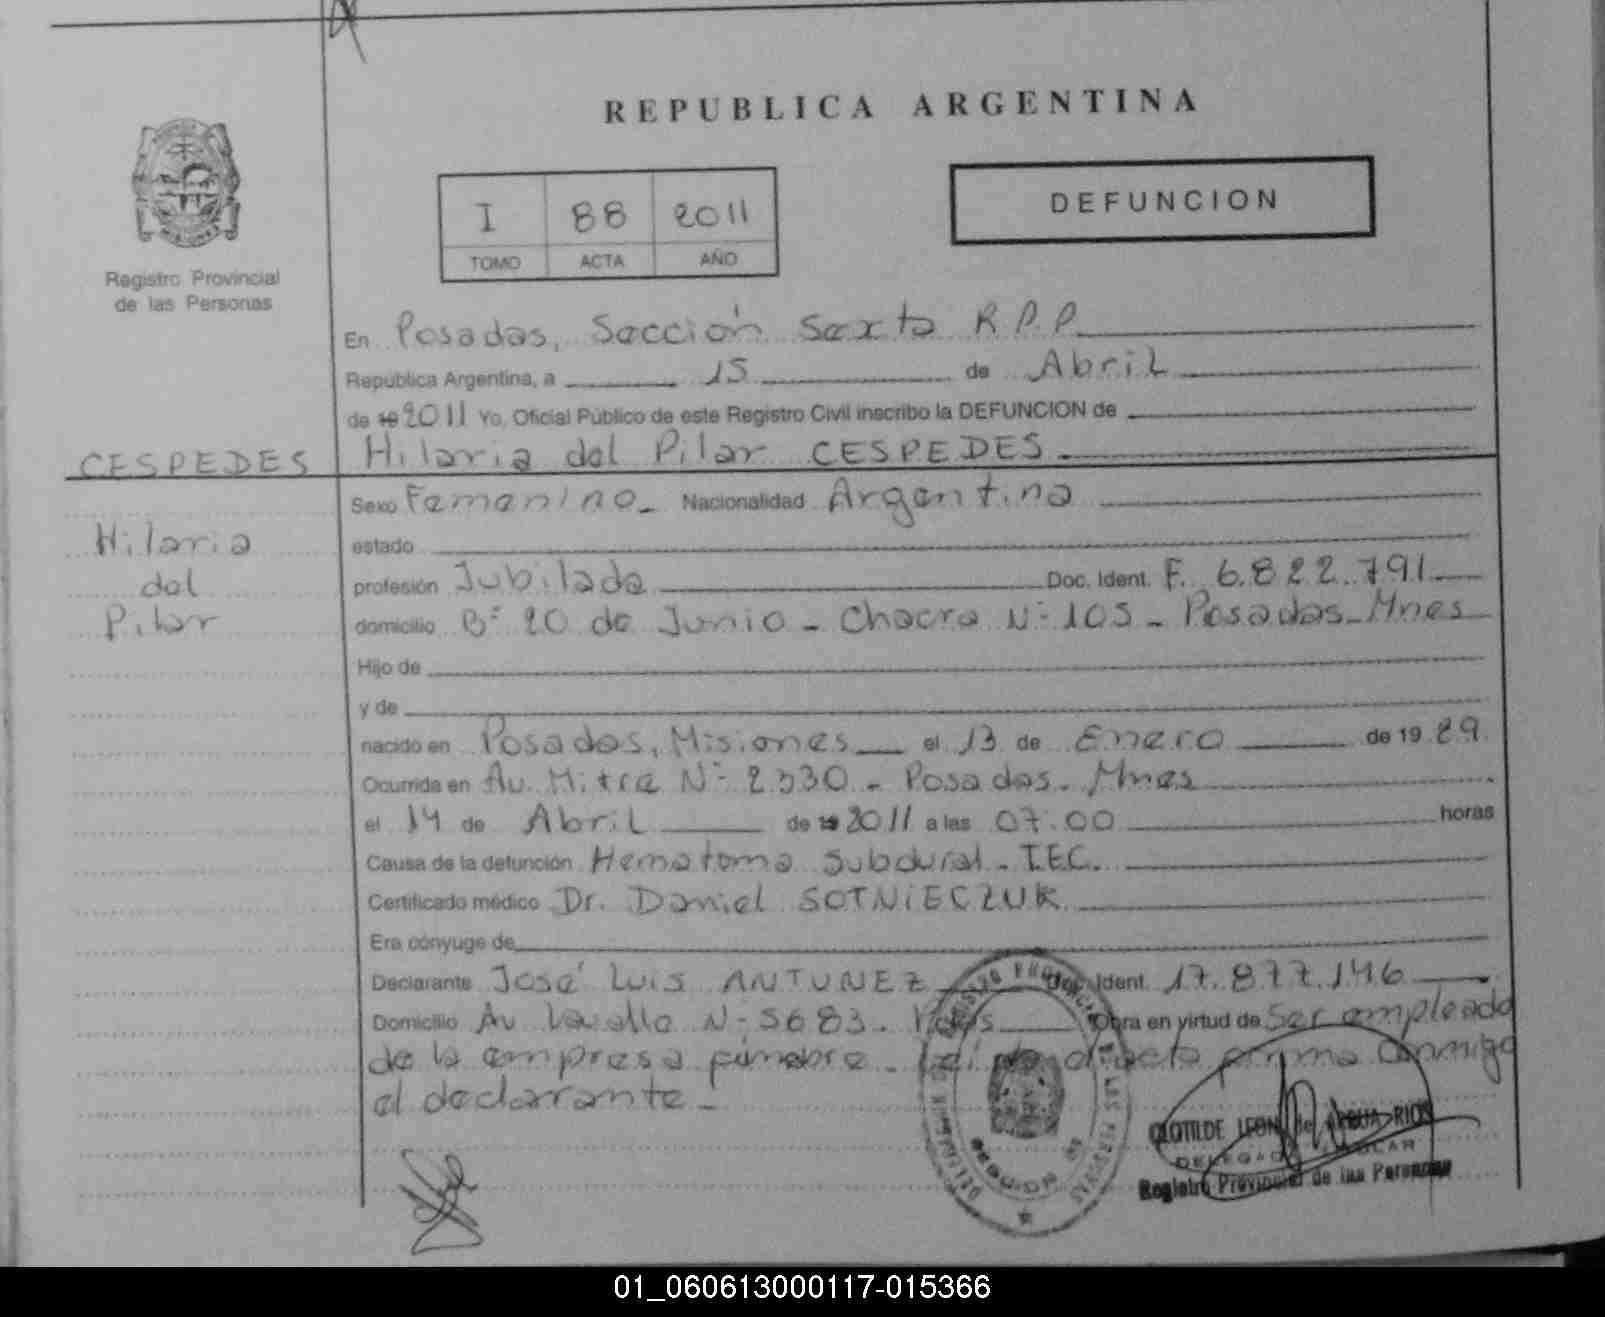 REPUBLICA ARGENTINA
Registro Provincial
de las Personas
I 88 2011
TOMO ACTA AÑO
DEFUNCION
En Posadas, Sección Sexta R.P.P.
República Argentina, a 15 de Abril
de 19 2011 Yo, Oficial Público de este Registro Civil inscribo la DEFUNCION de
CESPEDES
Hilaria
del
Pilar
Hilaria del Pilar CESPEDES
Sexo Femenino Nacionalidad Argentina
estado
profesión Jubilada Doc. Ident. F. 6.822.791
domicilio Bº 20 de Junio - Chacra Nº 105 - Posadas - Mnes
Hijo de
y de
nacido en Posadas, Misiones el 13 de Enero de 19
Ocurrida en Av. Mitre Nº 2330 - Posadas - Mnes
el 14 de Abril de 19 2011 a las 07.00 horas
Causa de la defunción Hematoma Subdural - T.E.C.
Certificado médico Dr. Daniel SOTNiECZUK
Era cónyuge de
Declarante José Luis ANTUNEZ Doc. Ident. 17.877.146
Domicilio Av Lavalle Nº 5683. Obra en virtud de Ser empleado
de la empresa fúnebre. Leída el acta firma conmigo
el declarante
CLOTILDE LEON de
DELEGADA TITULAR
Registro Provincial de las Personas
01_060613000117-015366